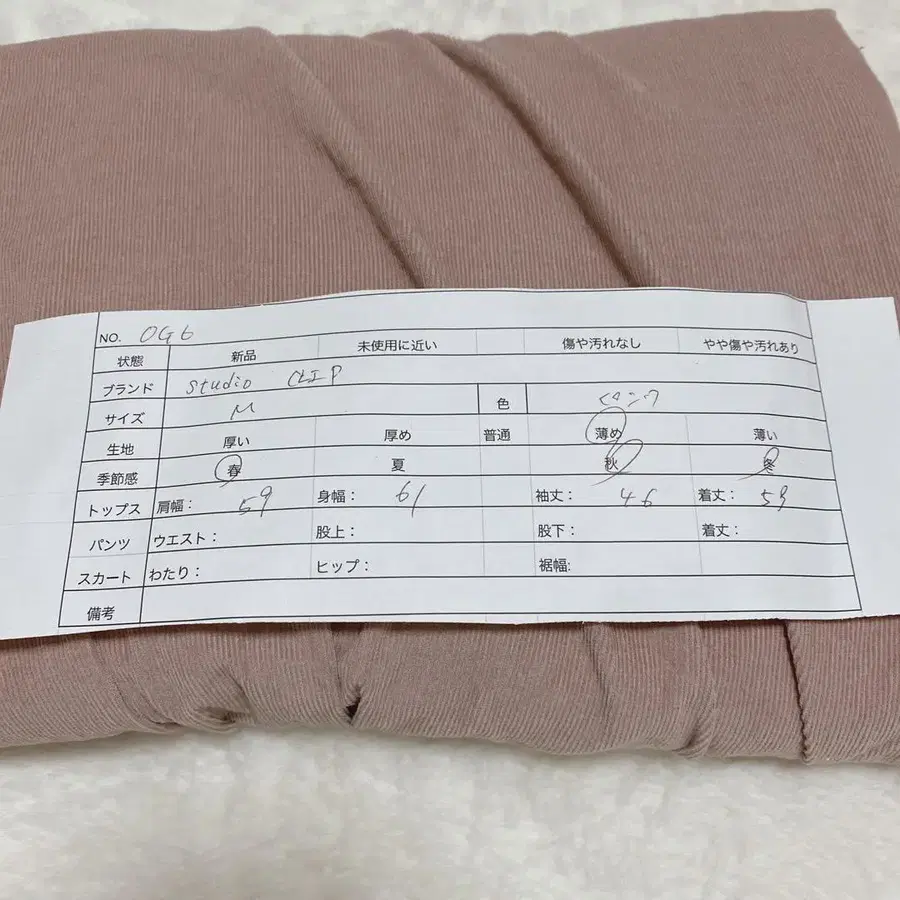 NO. OG6
状態 新品 未使用に近い 傷や汚れなし やや傷や汚れあり
ブランド studio CLIP
サイズ M 色 ピンク
生地 厚い 厚め 普通 薄め 薄い
季節感 春 夏 秋 冬
トップス 肩幅: 59 身幅: 61 袖丈: 46 着丈: 59
パンツ ウエスト: 股上: 股下: 着丈:
スカート わたり: ヒップ: 裾幅:
備考